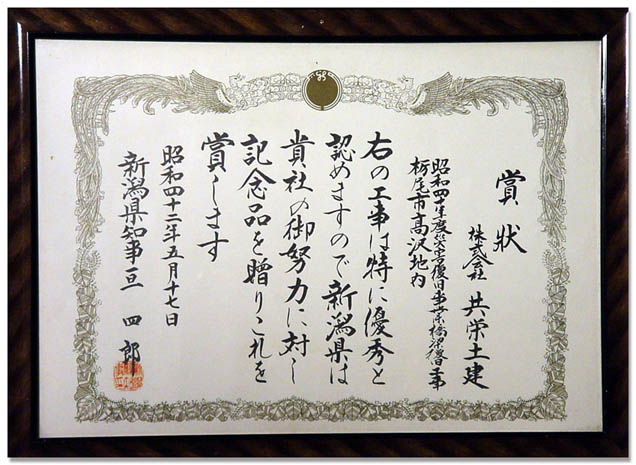 賞状
株式会社 共栄土建
昭和四十年度災害復旧事業橋梁復旧工事
栃尾市高沢地内
右の工事は特に優秀と
認めますので新潟県は
貴社の御努力に対し
記念品を贈りこれを
賞します
昭和四十二年五月十七日
新潟県知事 亘 四郎